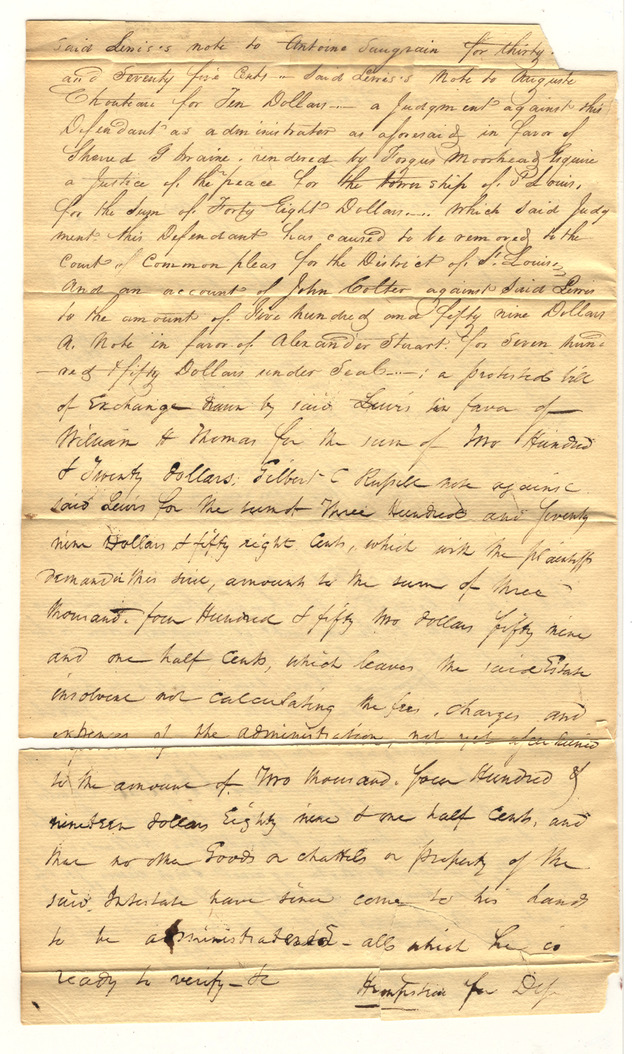 said Lewis's note to Antoine Saugrain for thirty
and Seventy five Cents — Said Lewis's Note to Auguste
Chouteau for Ten Dollars — a Judgment against this
Defendant as administrator as aforesaid in favor of
rendered by Fergus Moorhead Esquire
a Justice of the peace for the township of St Louis,
for the Sum of Forty Eight Dollars — which said Judg
ment this Defendant has caused to be removed to the
Court of Common pleas for the District of St. Louis,
And an account of John Colter against Said Lewis
to the amount of five hundred and fifty nine Dollars
A. Note in favor of Alexander Stuart for Seven hund
red & fifty Dollars under Seal — ; a protested bill
of Exchange drawn by said Lewis in favor of
William H Thomas for the sum of Two Hundred
& Twenty dollars; Gilbert C Russell note against
said Lewis for the sum of Three Hundred and Seventy
nine Dollars & fifty eight Cents, which with the plaintiffs
demand in this suit, amounts to the sum of three
thousand four Hundred & fifty two dollars fifty nine
and one half Cents, which leaves the said Estate
insolvent not calculating the fees, charges and
expenses of the administration, not yet ascertained
to the amount of Two thousand four Hundred &
nineteen dollars Eighty nine & one half Cents, and
that no other Goods or chattels or property of the
said Intestate have since come to his hands
to be administrated — all which he is
ready to verify — &c
Hempstead for Def